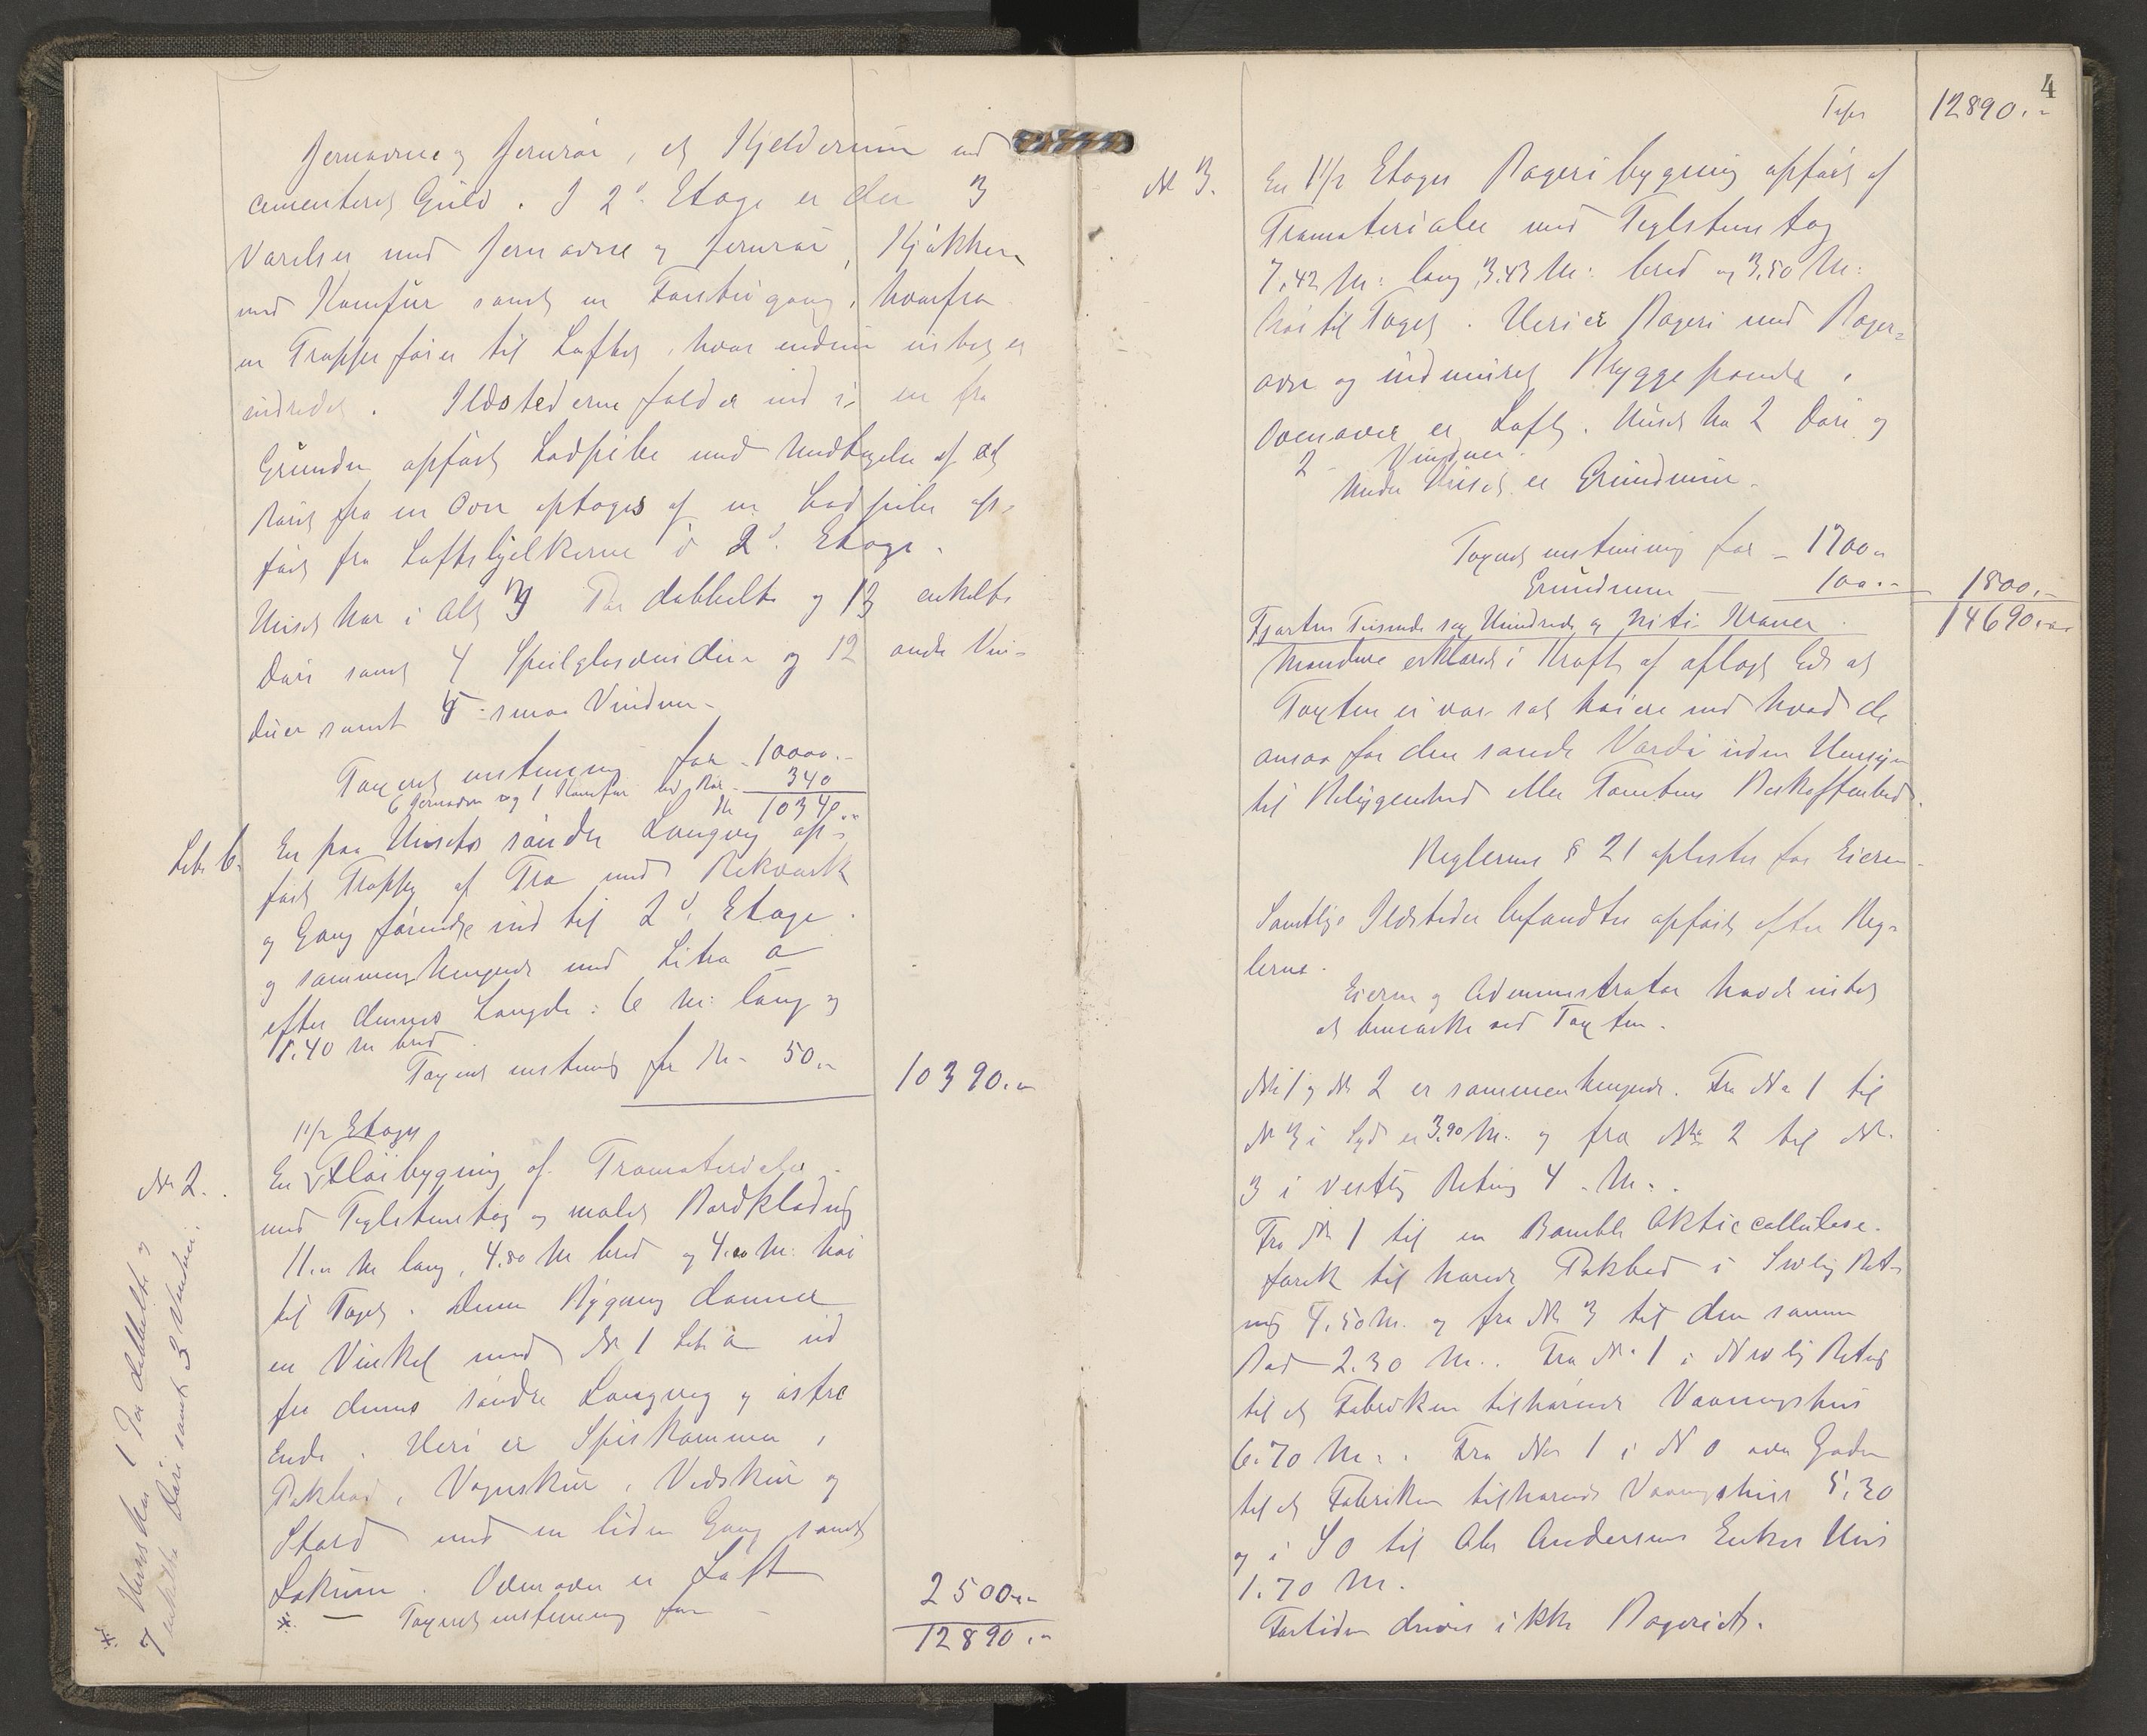 Jernovne og Jernrör, et Kjelderrum med
cementeret Gulv. I 2d Etage er der 3
Værelser med Jernovne og Jernrör, Kjökken
med Komfur samt en Forstugang, hvorfra
en Trappe förer til Loftet, hvor endnu intet er
indredet. Ildstederne falder ind i en fra
Grunden opfört Ladpibe med Undtagelse af at
Röret fra en Ovn optages af en Ladpibe op-
fört fra Loftsbjelkerne i 2d Etage.
Huset har i alt 3 Par dobbelte og 13 enkelte
Döre samt 4 Speilglasvinduer og 12 andre Vin-
duer samt 5 smaa Vinduer.
Taxeret enstemmig for 10000.-
6 Jernovne og 1 Komfur med Rör 340
Kr 10340.-
Litr b. En paa Husets söndre Langvæg op-
fört Trappe af Træ med Rekværk
og Gang förende ind til 2d Etage
og sammenhengende med Litra a
efter dennes Længde: 6 M: lang og
1,40 M bred
Taxeret enstemmig for Kr. 50.- 10390.-
1 1/2 Etages
No 2. En Flöibygning af Træmaterialer
med Teglstenstag og malet Bordklædning
11.- M lang, 4.80 M bred og 4.00 M: höi
til Taget. Denne Bygning danner
en Vinkel med No 1 Litr a ud
fra dennes söndre Langvæg og östre
Ende. Heri er Spiskammer,
Pakbod, Vognskur, Vedskur og
Stald med en liden Gang samt
Lokum. Ovenover er Loft
* — Taxeret enstemmig for - 2500.-
12890.-
* Huset har 1 Par dobbelte og
7 enkelte Döre samt 3 Vinduer.
4
Tsfr 12890.-
No 3. En 1 1/2 Etages Bageribygning opfört af
Træmaterialer med Teglstenstag
7.42 M: lang, 3.43 M: bred og 3,50 M:
höi til Taget. Heri er Bageri med Bager-
ovn og indmuret Bryggepande.
Ovenover er Loft. Huset har 2 Döre og
2 Vinduer.
Under Huset er Grundmur.
Taxeret enstemmig for - 1700.-
Grundmur — 100.- 1800.-
Fjorten Tusende sex Hundrede og niti Kroner. 14690.-
Mændene erklæret i Kraft af aflagt Ed at
Taxten ei var sat höiere end hvad de
ansaa for den sande Værdi uden Hensyn
til Beliggenhed eller Tomtens Beskaffenhed.
Reglerne § 21 oplæstes for Eieren.
Samtlige Ildsteder befandtes opfört efter Reg-
lerne.
Eieren og Administrator havde intet
at bemærke ved Taxten.
No 1 og No 2 er sammenhengende. Fra No 1 til
No 3 i Syd er 3.90 M. og fra No 2 til No
3 i vestlig Retning 4 M.
Fra No 1 til en Bamble Aktiecellulose-
fabrik tilhörende Pakbod i Svlig Ret-
ning 4.50 M. og fra No 3 til den samme
Bod 2.30 M. Fra No 1 i Nvlig Retning
til et Fabriken tilhörende Vaaningshus
6.70 M. Fra No 1 i N O over Gaden
til et Fabriken tilhörende Vaaningshus 5,30
og i S O til Abr Andersens Enkes Hus
1.70 M.
Fortiden drives ikke Bageriet.